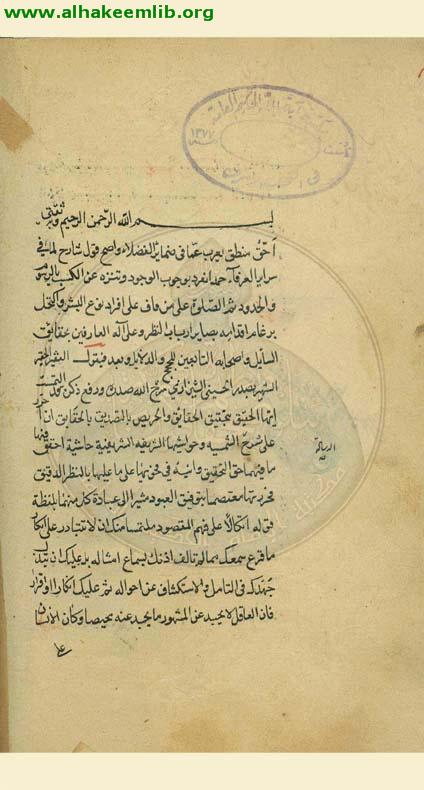 www.alhakeemlib.org
مكتبة آية الله الحكيم العامة
١٣٧٧
بسم الله الرحمن الرحيم وبه ثقتي
احق منطق يعرب عما في ضمائر الفضلاء واصح قول شارح لما في
سرائر العرفاء حمد من انفرد بوجوب الوجود وتنزه عن الكسب بالرسوم
والحدود ثم الصلوة على من فاق على افراد نوع البشر واكتحل
برغام اقدامه بصاير ارباب النظر وعلى آله العارفين بحقايق
المسايل واصحابه التابعين للحجج والدلايل وبعد فيقول الفقير الحقير
الشهير بصدر الحسيني الشيرازي شرح الله صدره ورفع ذكره
ايها الحقيق بتحقيق الحقايق والحريص بالتصديق بالحقايق ان
على شرح الشمسية وحواشيها الشريفة الشريفية حاشية احقق فيها
ما فيهما حق التحقيق وانبه في تحتها على ما عليها بالنظر الدقيق
فحررتها معتصما بتوفيق المعبود مشيرا الى عبادة كل منهما بلفظة
قوله اتكالا على فهم المقصود ملتمسا منك ان لا تتبادر على انكار
ما قرع سمعك بما لم تالف اذنك بسماع امثاله بل عليك ان تبذل
جهدك في التامل والاستكشاف عن احواله ثم عليك انكارا او اقرار
فان العاقل لا يحيد عن المشهور ما يجد عنه محيصا وكان الانسان
الرسالة